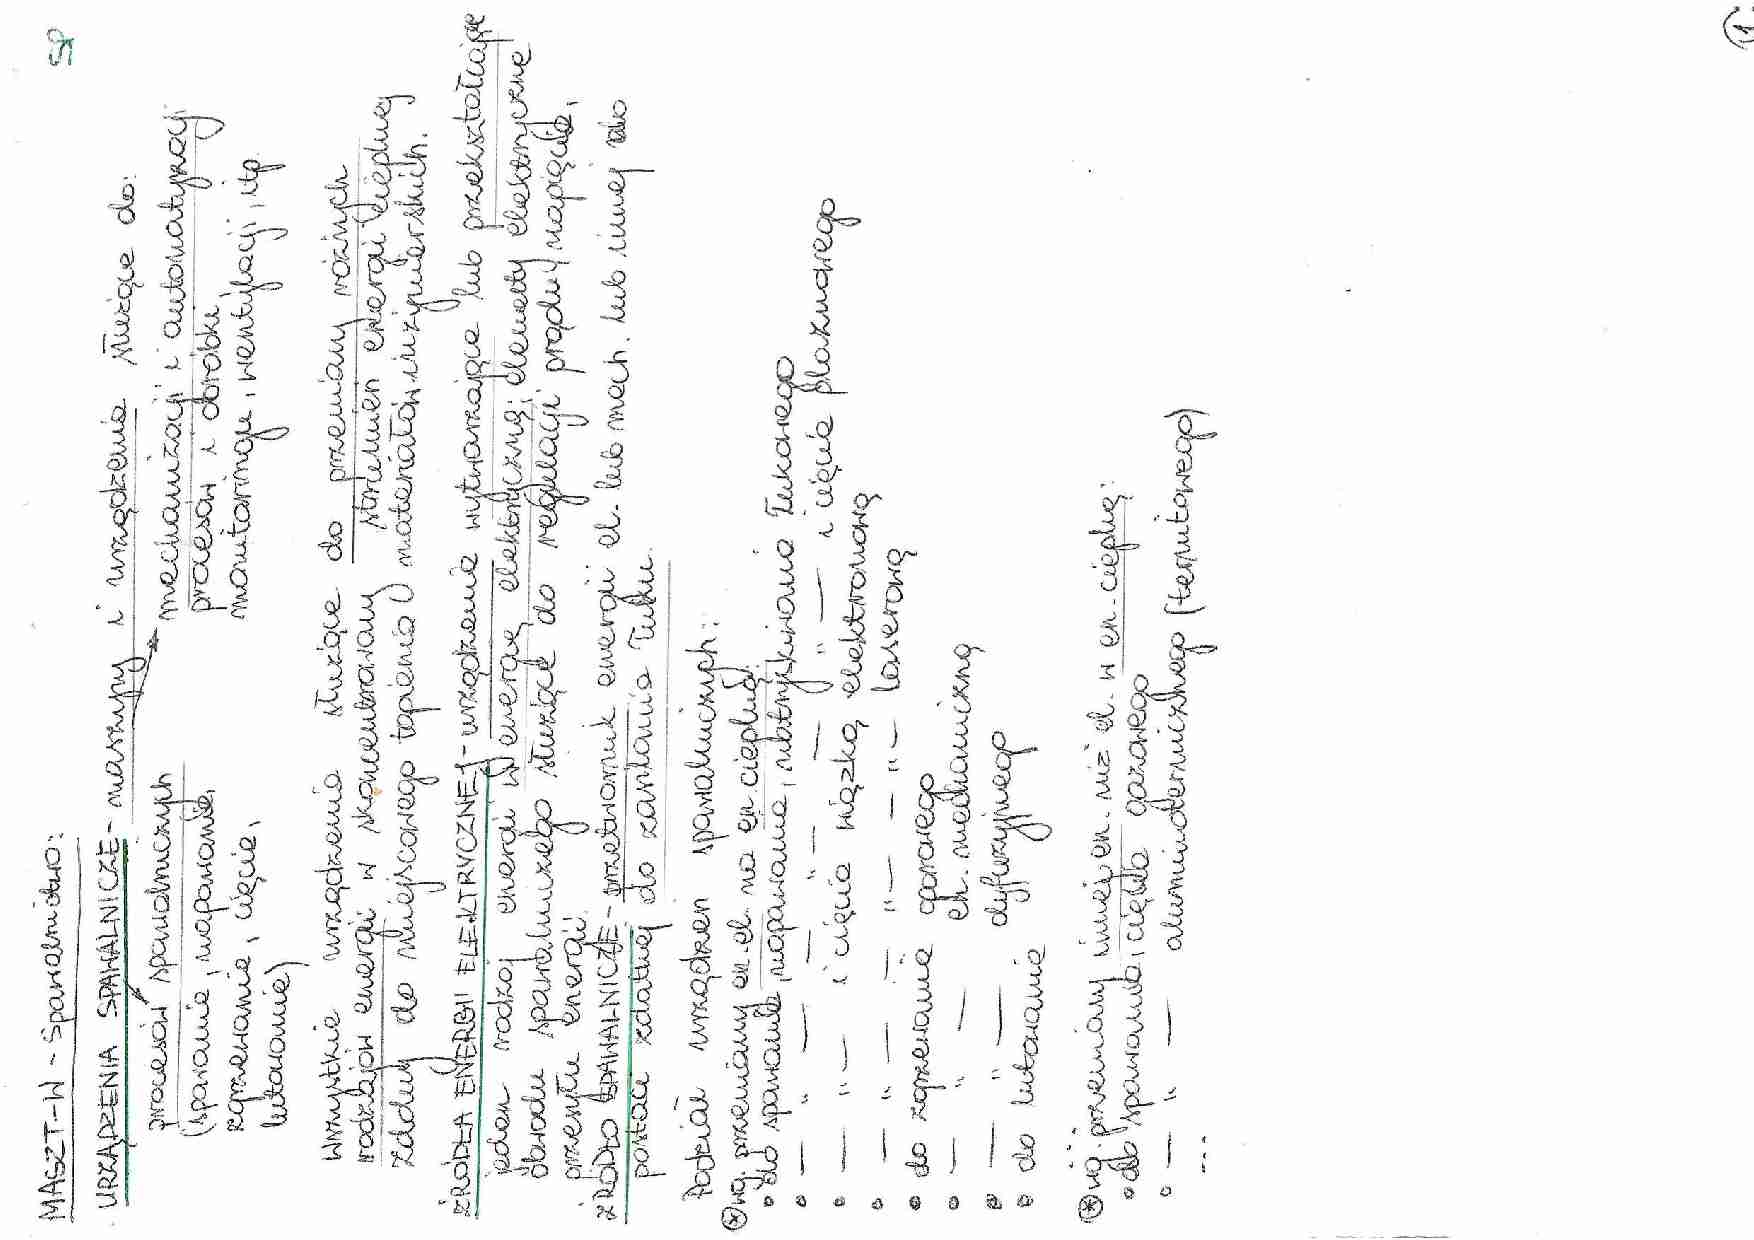 MASZT-W - Spawalnictwo:
URZĄDZENIA SPAWALNICZE - maszyny i urządzenia służące do:
procesów spawalniczych
(spawanie, napawanie,
zgrzewanie, cięcie,
lutowanie)
mechanizacji i automatyzacji
procesów i obróbki,
monitoringu, wentylacji, itp
Wszystkie urządzenia służące do przemiany różnych
rodzajów energii w skoncentrowany strumień energii cieplnej
zdolny do miejscowego topienia materiałów inżynierskich.
ŹRÓDŁA ENERGII ELEKTRYCZNEJ - urządzenie wytwarzające lub przekształcające
jeden rodzaj energii w energię elektryczną; elementy elektryczne
obwodu spawalniczego służące do regulacji prądu, napięcia,
przesyłu energii.
ŹRÓDŁO SPAWALNICZE - przetwornik energii el. lub mech. lub innej do
postaci zdatnej do zasilania łuku.
Podział urządzeń spawalniczych:
⊛ wg. przemiany en. el. na en. cieplną:
• do spawania, napawania, natryskiwania łukowego
• — " — " — " — i cięcia plazmowego
• — " — i cięcia wiązką elektronową
• — " — " — " — laserową
• do zgrzewania oporowego
• — " — en. mechaniczną
• — " — dyfuzyjnego
• do lutowania
...
⊛ wg. przemiany innej en. niż el. w en. cieplną:
• do spawania, cięcia gazowego
• — " — aluminotermicznego (termitowego)
...
1.